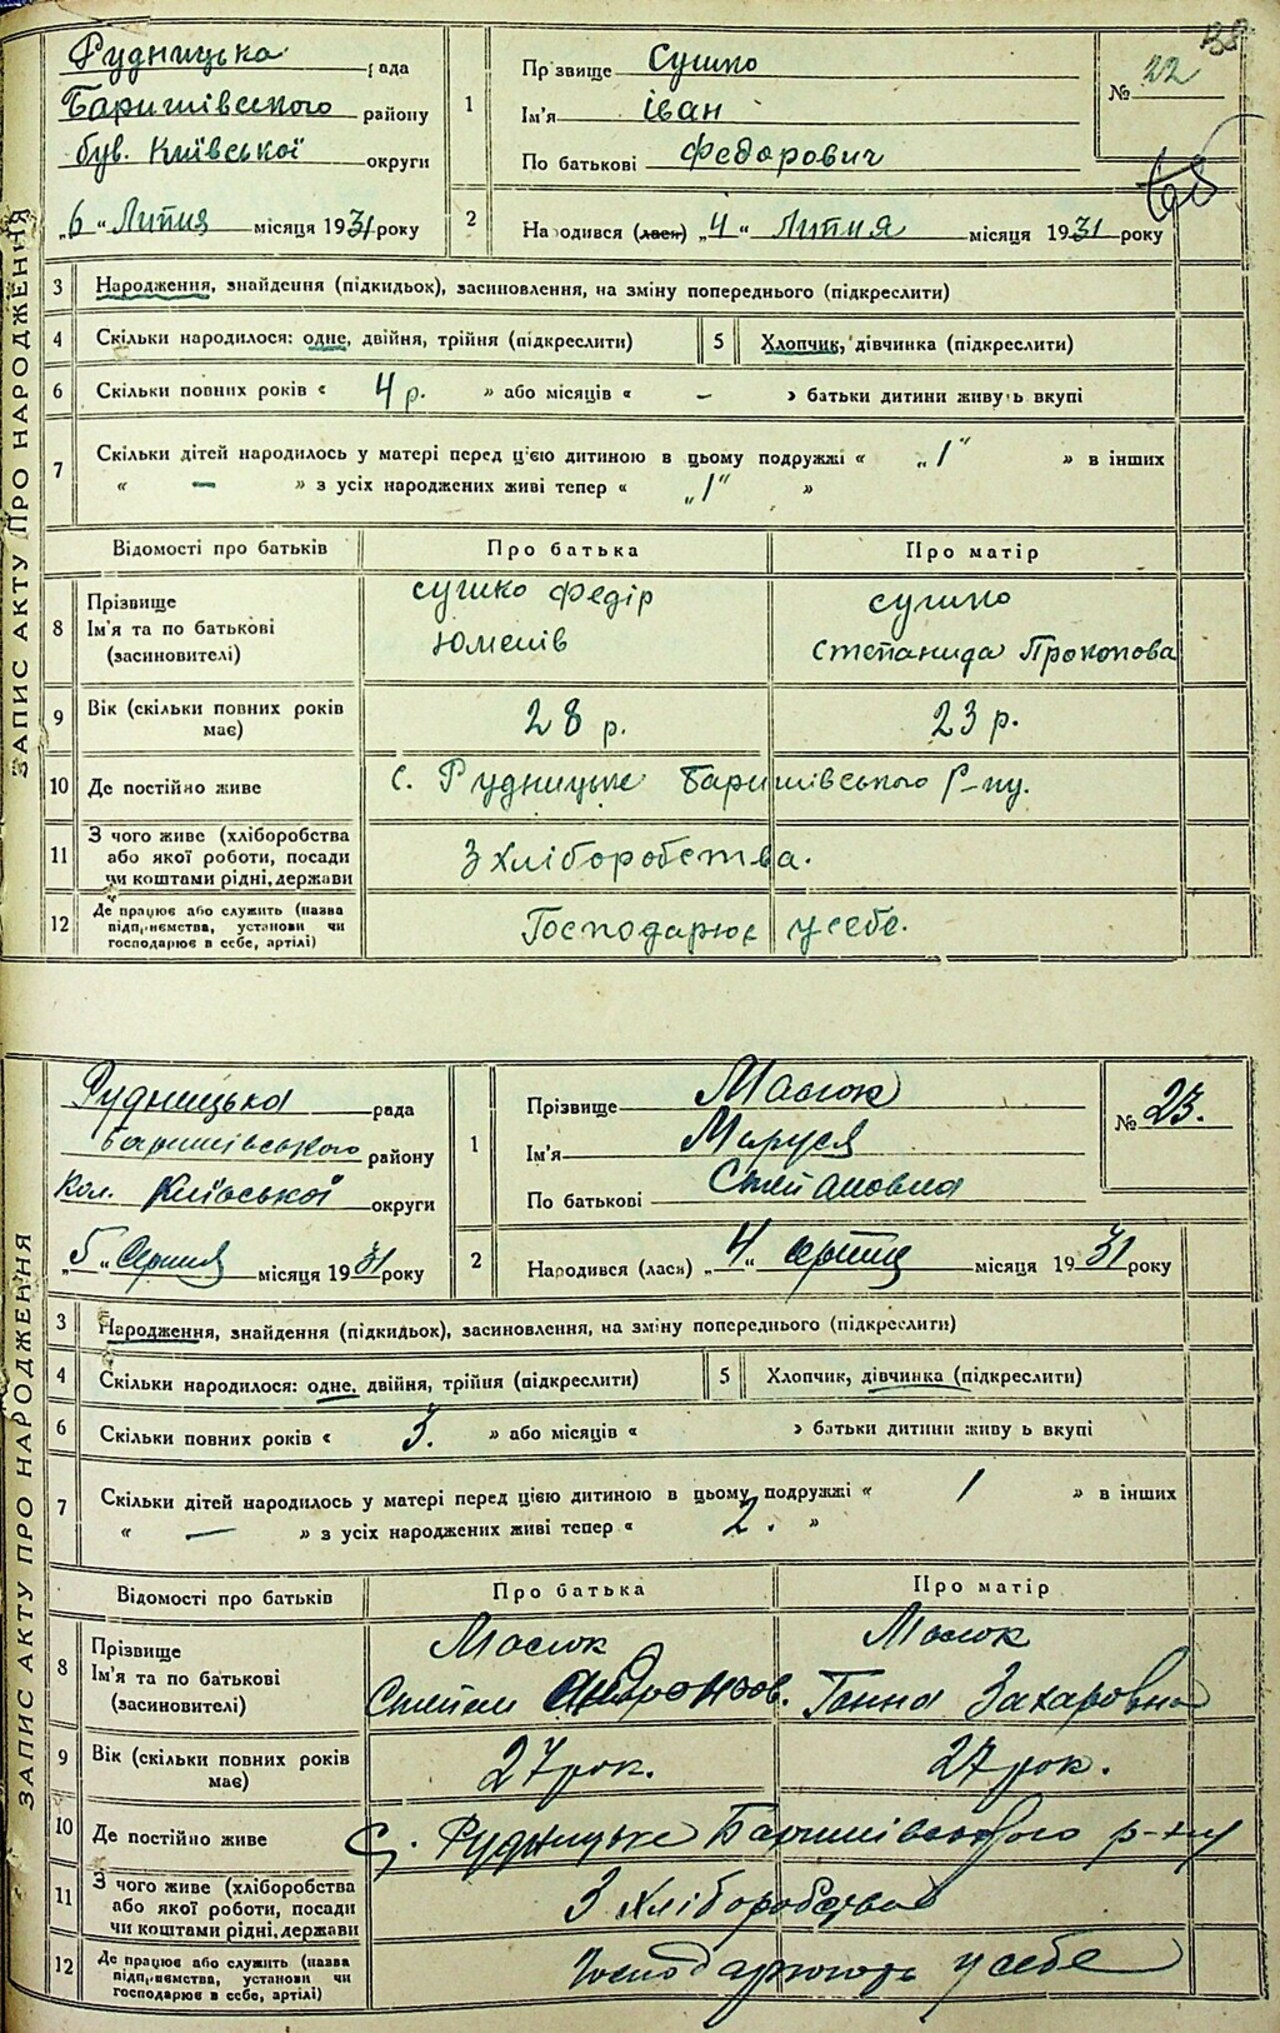 138
Рудницька рада
Баришівського району
був. Київської округи
„6“ Липня місяця 1931 року
1
Прізвище Сушко
Ім'я Іван
По батькові Федорович
№ 22
2
Народився (лася) „4“ Липня місяця 1931 року
ЗАПИС АКТУ ПРО НАРОДЖЕННЯ
3 Народження, знайдення (підкидьок), засиновлення, на зміну попереднього (підкреслити)
4 Скільки народилося: одне, двійня, трійня (підкреслити) 5 Хлопчик, дівчинка (підкреслити)
6 Скільки повних років « 4 р. » або місяців « - » батьки дитини живуть вкупі
7 Скільки дітей народилось у матері перед цією дитиною в цьому подружжі « „1“ » в інших
« — » з усіх народжених живі тепер « „1“ »
Відомості про батьків Про батька Про матір
8 Прізвище
Ім'я та по батькові
(засиновителі)
Сушко Федір
Юменів
Сушко
Степанида Прокопова
9 Вік (скільки повних років
має)
28 р. 23 р.
10 Де постійно живе с. Рудницьке Баришівського Р-ну.
11 З чого живе (хліборобства
або якої роботи, посади
чи коштами рідні, держави
З хліборобства.
12 Де працює або служить (назва
підприємства, установи чи
господарює в себе, артілі)
Господарює у себе.
Рудницька рада
Баришівського району
Кол. Київської округи
„5“ Серпня місяця 1931 року
1
Прізвище Масюк
Ім'я Маруся
По батькові Степановна
№ 23.
2
Народився (лася) „4“ серпня місяця 1931 року
ЗАПИС АКТУ ПРО НАРОДЖЕННЯ
3 Народження, знайдення (підкидьок), засиновлення, на зміну попереднього (підкреслити)
4 Скільки народилося: одне, двійня, трійня (підкреслити) 5 Хлопчик, дівчинка (підкреслити)
6 Скільки повних років « 3. » або місяців « » батьки дитини живуть вкупі
7 Скільки дітей народилось у матері перед цією дитиною в цьому подружжі « 1 » в інших
« — » з усіх народжених живі тепер « 2. »
Відомості про батьків Про батька Про матір
8 Прізвище
Ім'я та по батькові
(засиновителі)
Масюк
Степан
Масюк
Ганна Захаровна
9 Вік (скільки повних років
має)
27 рок. 27 рок.
10 Де постійно живе С. Рудницьке Баришівського р-ну
11 З чого живе (хліборобства
або якої роботи, посади
чи коштами рідні, держави
З Хліборобства
12 Де працює або служить (назва
підприємства, установи чи
господарює в себе, артілі)
Господарюють у себе